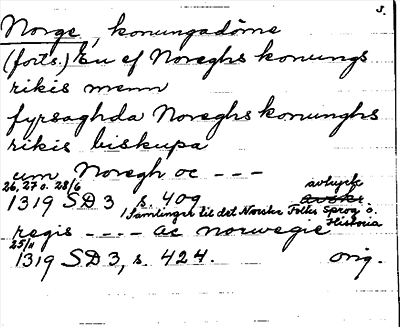 3.
Norge, konungadöme
(forts.) En ef Noreghs konungs
rikis menn
fyrsaghda Noreghs konunghs
rikis biskupa
um Noregh oc - - -
26, 27 o. 28/6 avtryck
1319 SD 3 s. 409
i Samlinger til det Norske Folks Sprog o. Historia
regis - - - - ac norwegie
25/11
1319 SD 3, s. 424. orig.